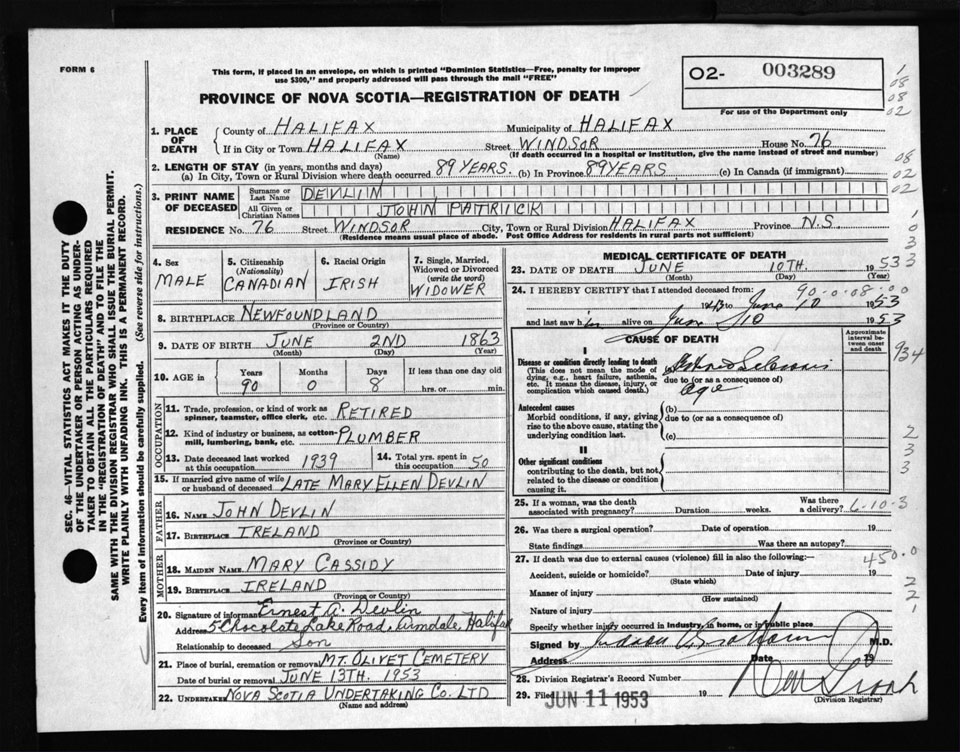 FORM 6
This form, if placed in an envelope, on which is printed "Dominion Statistics—Free, penalty for improper
use $300," and properly addressed will pass through the mail "FREE"
PROVINCE OF NOVA SCOTIA—REGISTRATION OF DEATH
02- 003289
For use of the Department only
1. PLACE OF DEATH
County of HALIFAX Municipality of HALIFAX
If in City or Town HALIFAX Street WINDSOR House No. 76
(Name) (If death occurred in a hospital or institution, give the name instead of street and number)
2. LENGTH OF STAY (in years, months and days)
(a) In City, Town or Rural Division where death occurred 89 YEARS. (b) In Province 89 YEARS (c) In Canada (if immigrant)
3. PRINT NAME OF DECEASED
Surname or Last Name DEVLIN
All Given or Christian Names JOHN PATRICK
RESIDENCE No. 76 Street WINDSOR City, Town or Rural Division HALIFAX Province N.S.
(Residence means usual place of abode. Post Office Address for residents in rural parts not sufficient)
4. Sex
MALE
5. Citizenship (Nationality)
CANADIAN
6. Racial Origin
IRISH
7. Single, Married, Widowed or Divorced (write the word)
WIDOWER
8. BIRTHPLACE NEWFOUNDLAND
(Province or Country)
9. DATE OF BIRTH JUNE 2ND 1863
(Month) (Day) (Year)
10. AGE in
Years Months Days If less than one day old
90 0 8 hrs. or min.
OCCUPATION
11. Trade, profession, or kind of work as
spinner, teamster, office clerk, etc. RETIRED
12. Kind of industry or business, as cotton-
mill, lumbering, bank, etc. PLUMBER
13. Date deceased last worked
at this occupation 1939
14. Total yrs. spent in
this occupation 50
15. If married give name of wife
or husband of deceased LATE MARY ELLEN DEVLIN
FATHER
16. NAME JOHN DEVLIN
17. BIRTHPLACE IRELAND
(Province or Country)
MOTHER
18. MAIDEN NAME MARY CASSIDY
19. BIRTHPLACE IRELAND
(Province or Country)
20. Signature of informant Ernest A. Devlin
Address 5 Chocolate Lake Road, Armdale, Halifax
Relationship to deceased Son
21. Place of burial, cremation or removal MT. OLIVET CEMETERY
Date of burial or removal JUNE 13TH. 1953
22. UNDERTAKER NOVA SCOTIA UNDERTAKING CO. LTD
(Name and address)
MEDICAL CERTIFICATE OF DEATH
23. DATE OF DEATH JUNE 10TH. 1953
(Month) (Day) (Year)
90-0-08-00
24. I HEREBY CERTIFY that I attended deceased from:
to June 10 1953
and last saw him alive on June 10 1953
CAUSE OF DEATH
Approximate interval between onset and death
I
Disease or condition directly leading to death
(This does not mean the mode of
dying, e.g., heart failure, asthenia,
etc. It means the disease, injury, or
complication which caused death.)
due to (or as a consequence of)
age
Antecedent causes
Morbid conditions, if any, giving
rise to the above cause, stating the
underlying condition last.
(b)
due to (or as a consequence of)
(c)
II
Other significant conditions
contributing to the death, but not
related to the disease or condition
causing it.
25. If a woman, was the death
associated with pregnancy? Duration weeks. Was there
a delivery? 6-10-3
26. Was there a surgical operation? Date of operation 19
State findings Was there an autopsy?
27. If death was due to external causes (violence) fill in also the following:
450.0
Accident, suicide or homicide? Date of injury 19
(State which)
Manner of injury
(How sustained)
Nature of injury
Specify whether injury occurred in industry, in home, or in public place
Signed by M.D.
Address Date 19
28. Division Registrar's Record Number
29. Filed JUN 11 1953 19
(Division Registrar)
SEC. 46—VITAL STATISTICS ACT MAKES IT THE DUTY
OF THE UNDERTAKER OR PERSON ACTING AS UNDER-
TAKER TO OBTAIN ALL THE PARTICULARS REQUIRED
IN THE "REGISTRATION OF DEATH" AND TO FILE THE
SAME WITH THE DIVISION REGISTRAR WHO SHALL ISSUE THE BURIAL PERMIT.
WRITE PLAINLY WITH UNFADING INK. THIS IS A PERMANENT RECORD.
Every item of information should be carefully supplied. (See reverse side for instructions.)
1
08
08
02
08
02
02
1
0
3
3
934
2
3
3
2
2
1